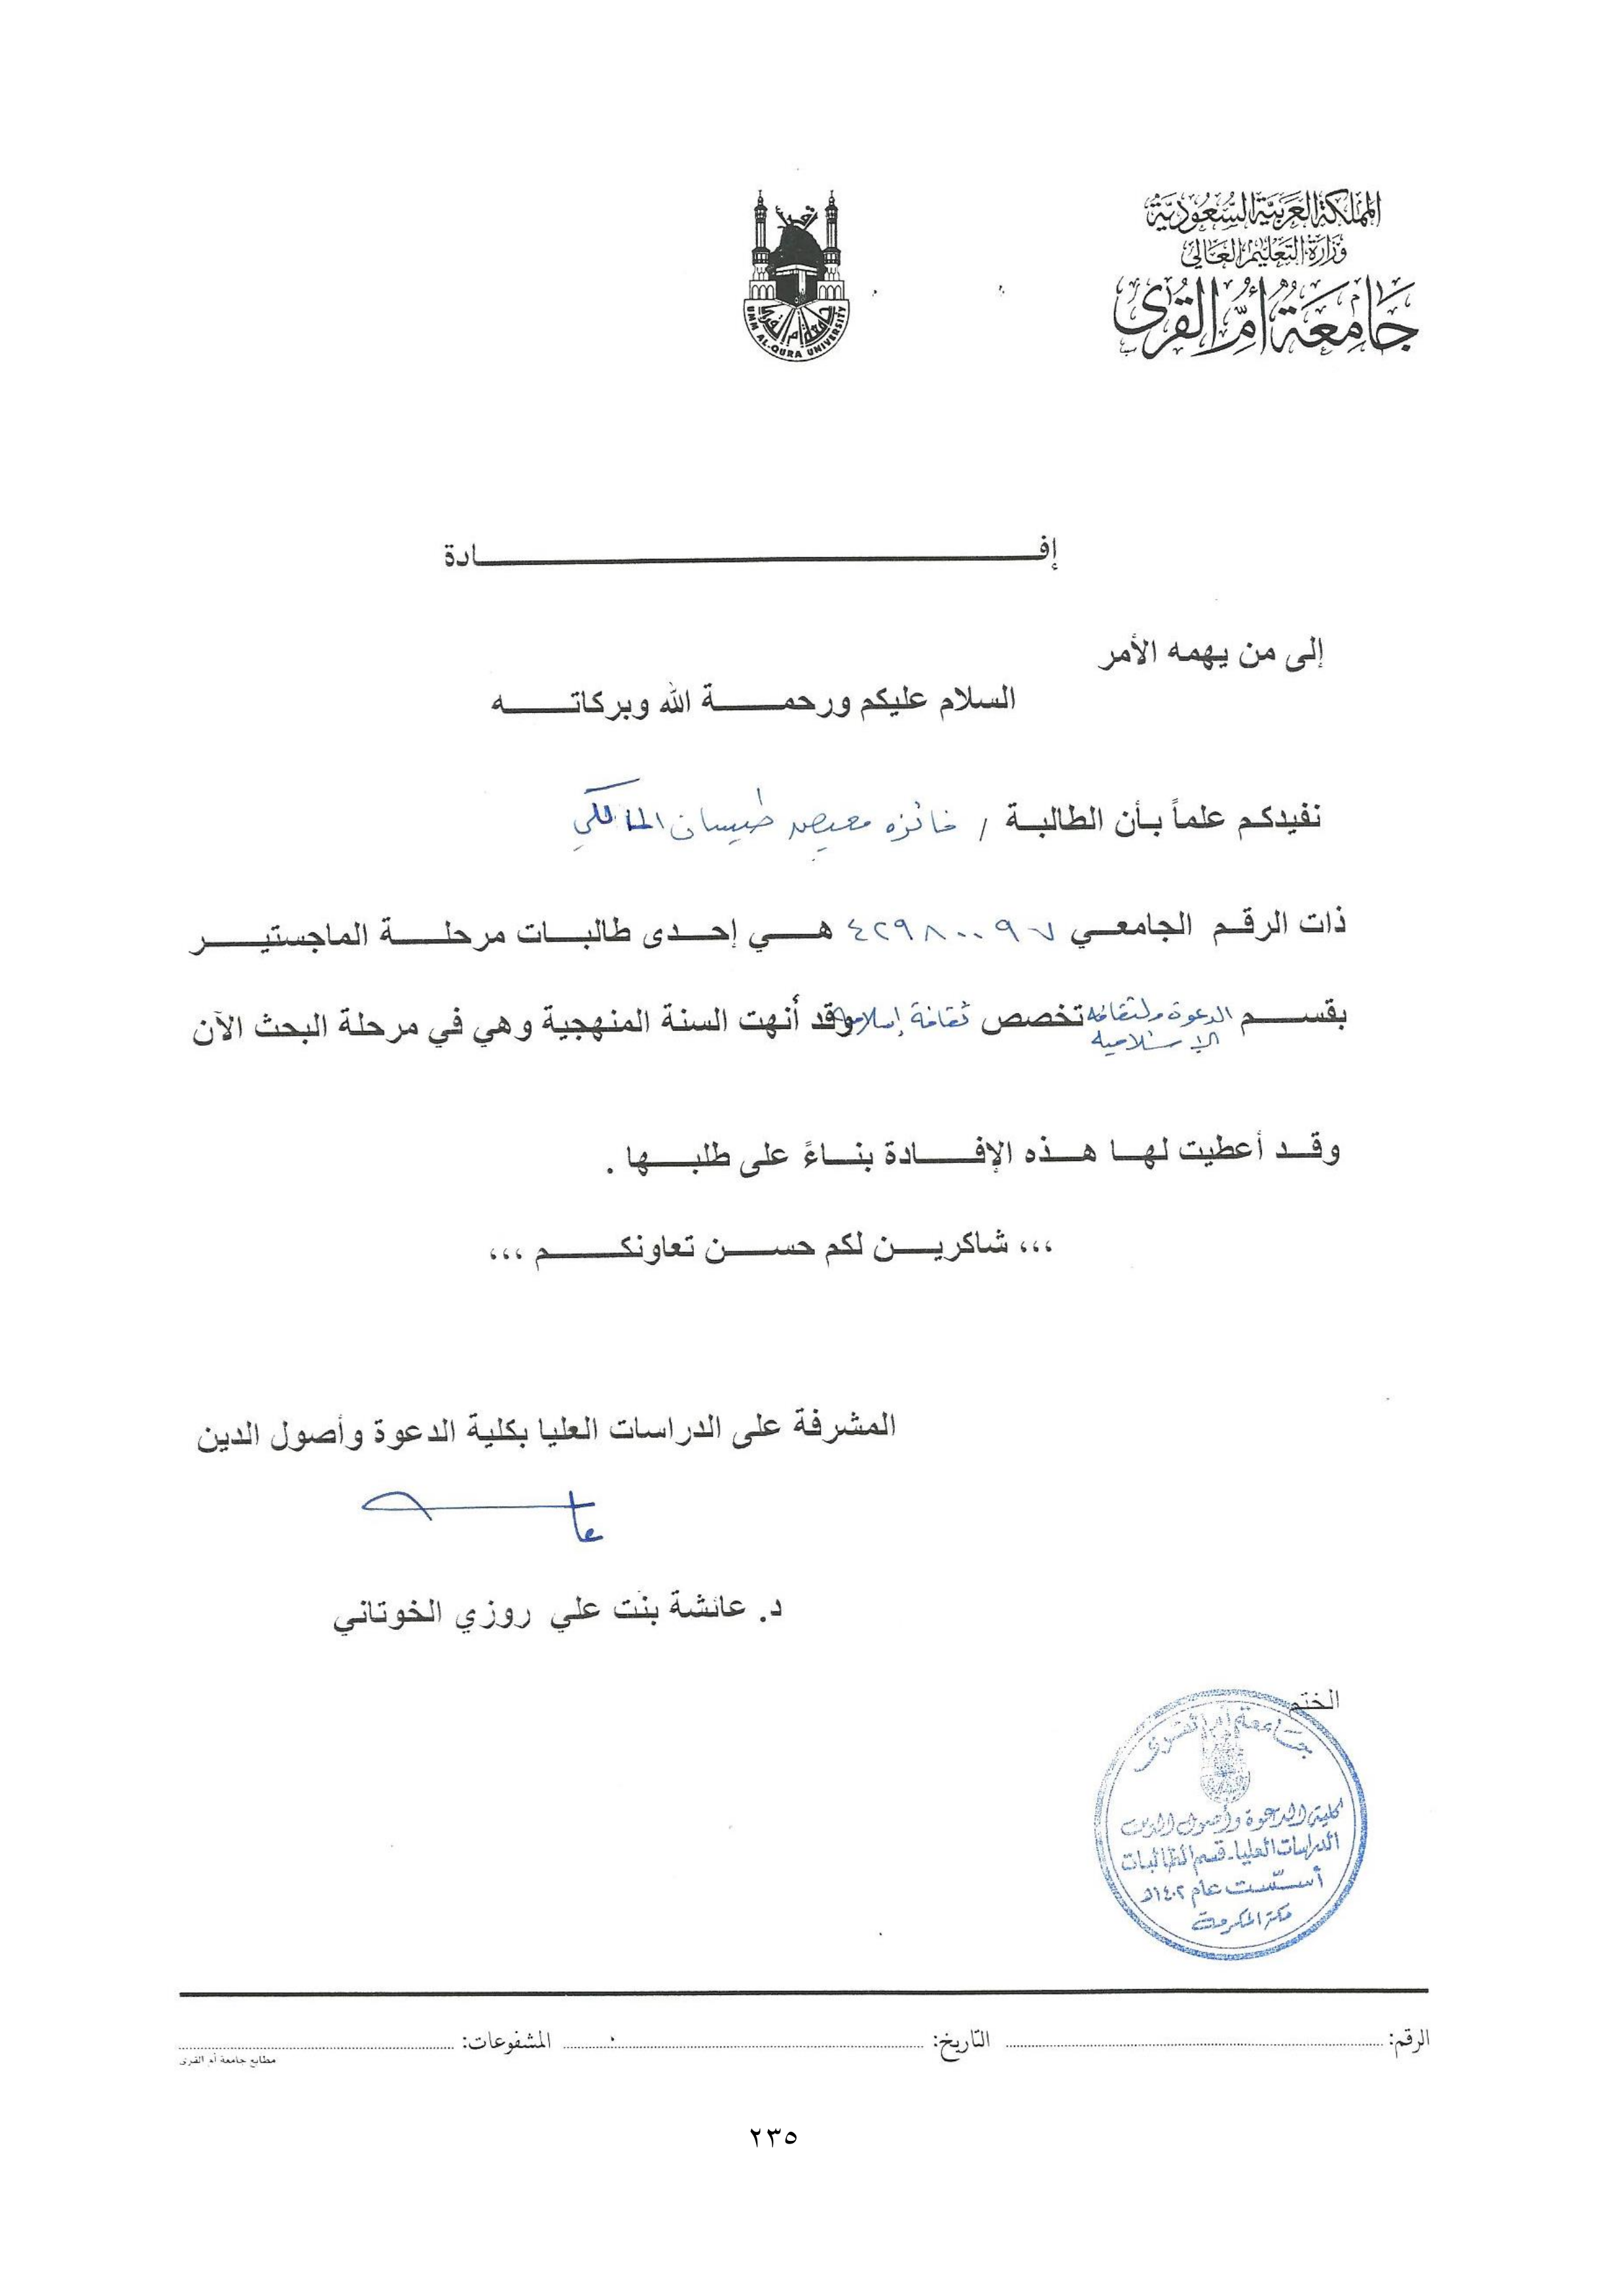 المملكة العربية السعودية
وزارة التعليم العالي
جامعة أم القرى
جامعة أم القرى
UMM AL-QURA UNIVERSITY
إفــــــــــادة
إلى من يهمه الأمر
السلام عليكم ورحمـــة الله وبركاتـــه
نفيدكم علماً بأن الطالبة / فائزه معيض طيسان المالكي
ذات الرقم الجامعي ٤٢٩٨٠٠٩٧ هي إحدى طالبات مرحلة الماجستير
بقسم الدعوة والثقافه الإسلاميه تخصص ثقافة إسلاميه وقد أنهت السنة المنهجية وهي في مرحلة البحث الآن
وقد أعطيت لها هذه الإفادة بناءً على طلبها .
،،، شاكرين لكم حسن تعاونكم ،،،
المشرفة على الدراسات العليا بكلية الدعوة وأصول الدين
د. عائشة بنت علي روزي الخوتاني
الختم
جامعة أم القرى
كلية الدعوة وأصول الدين
الدراسات العليا - قسم الطالبات
أسّست عام ١٤٠٢هـ
مكة المكرمة
الرقم: التاريخ: المشفوعات:
مطابع جامعة أم القرى
٢٣٥